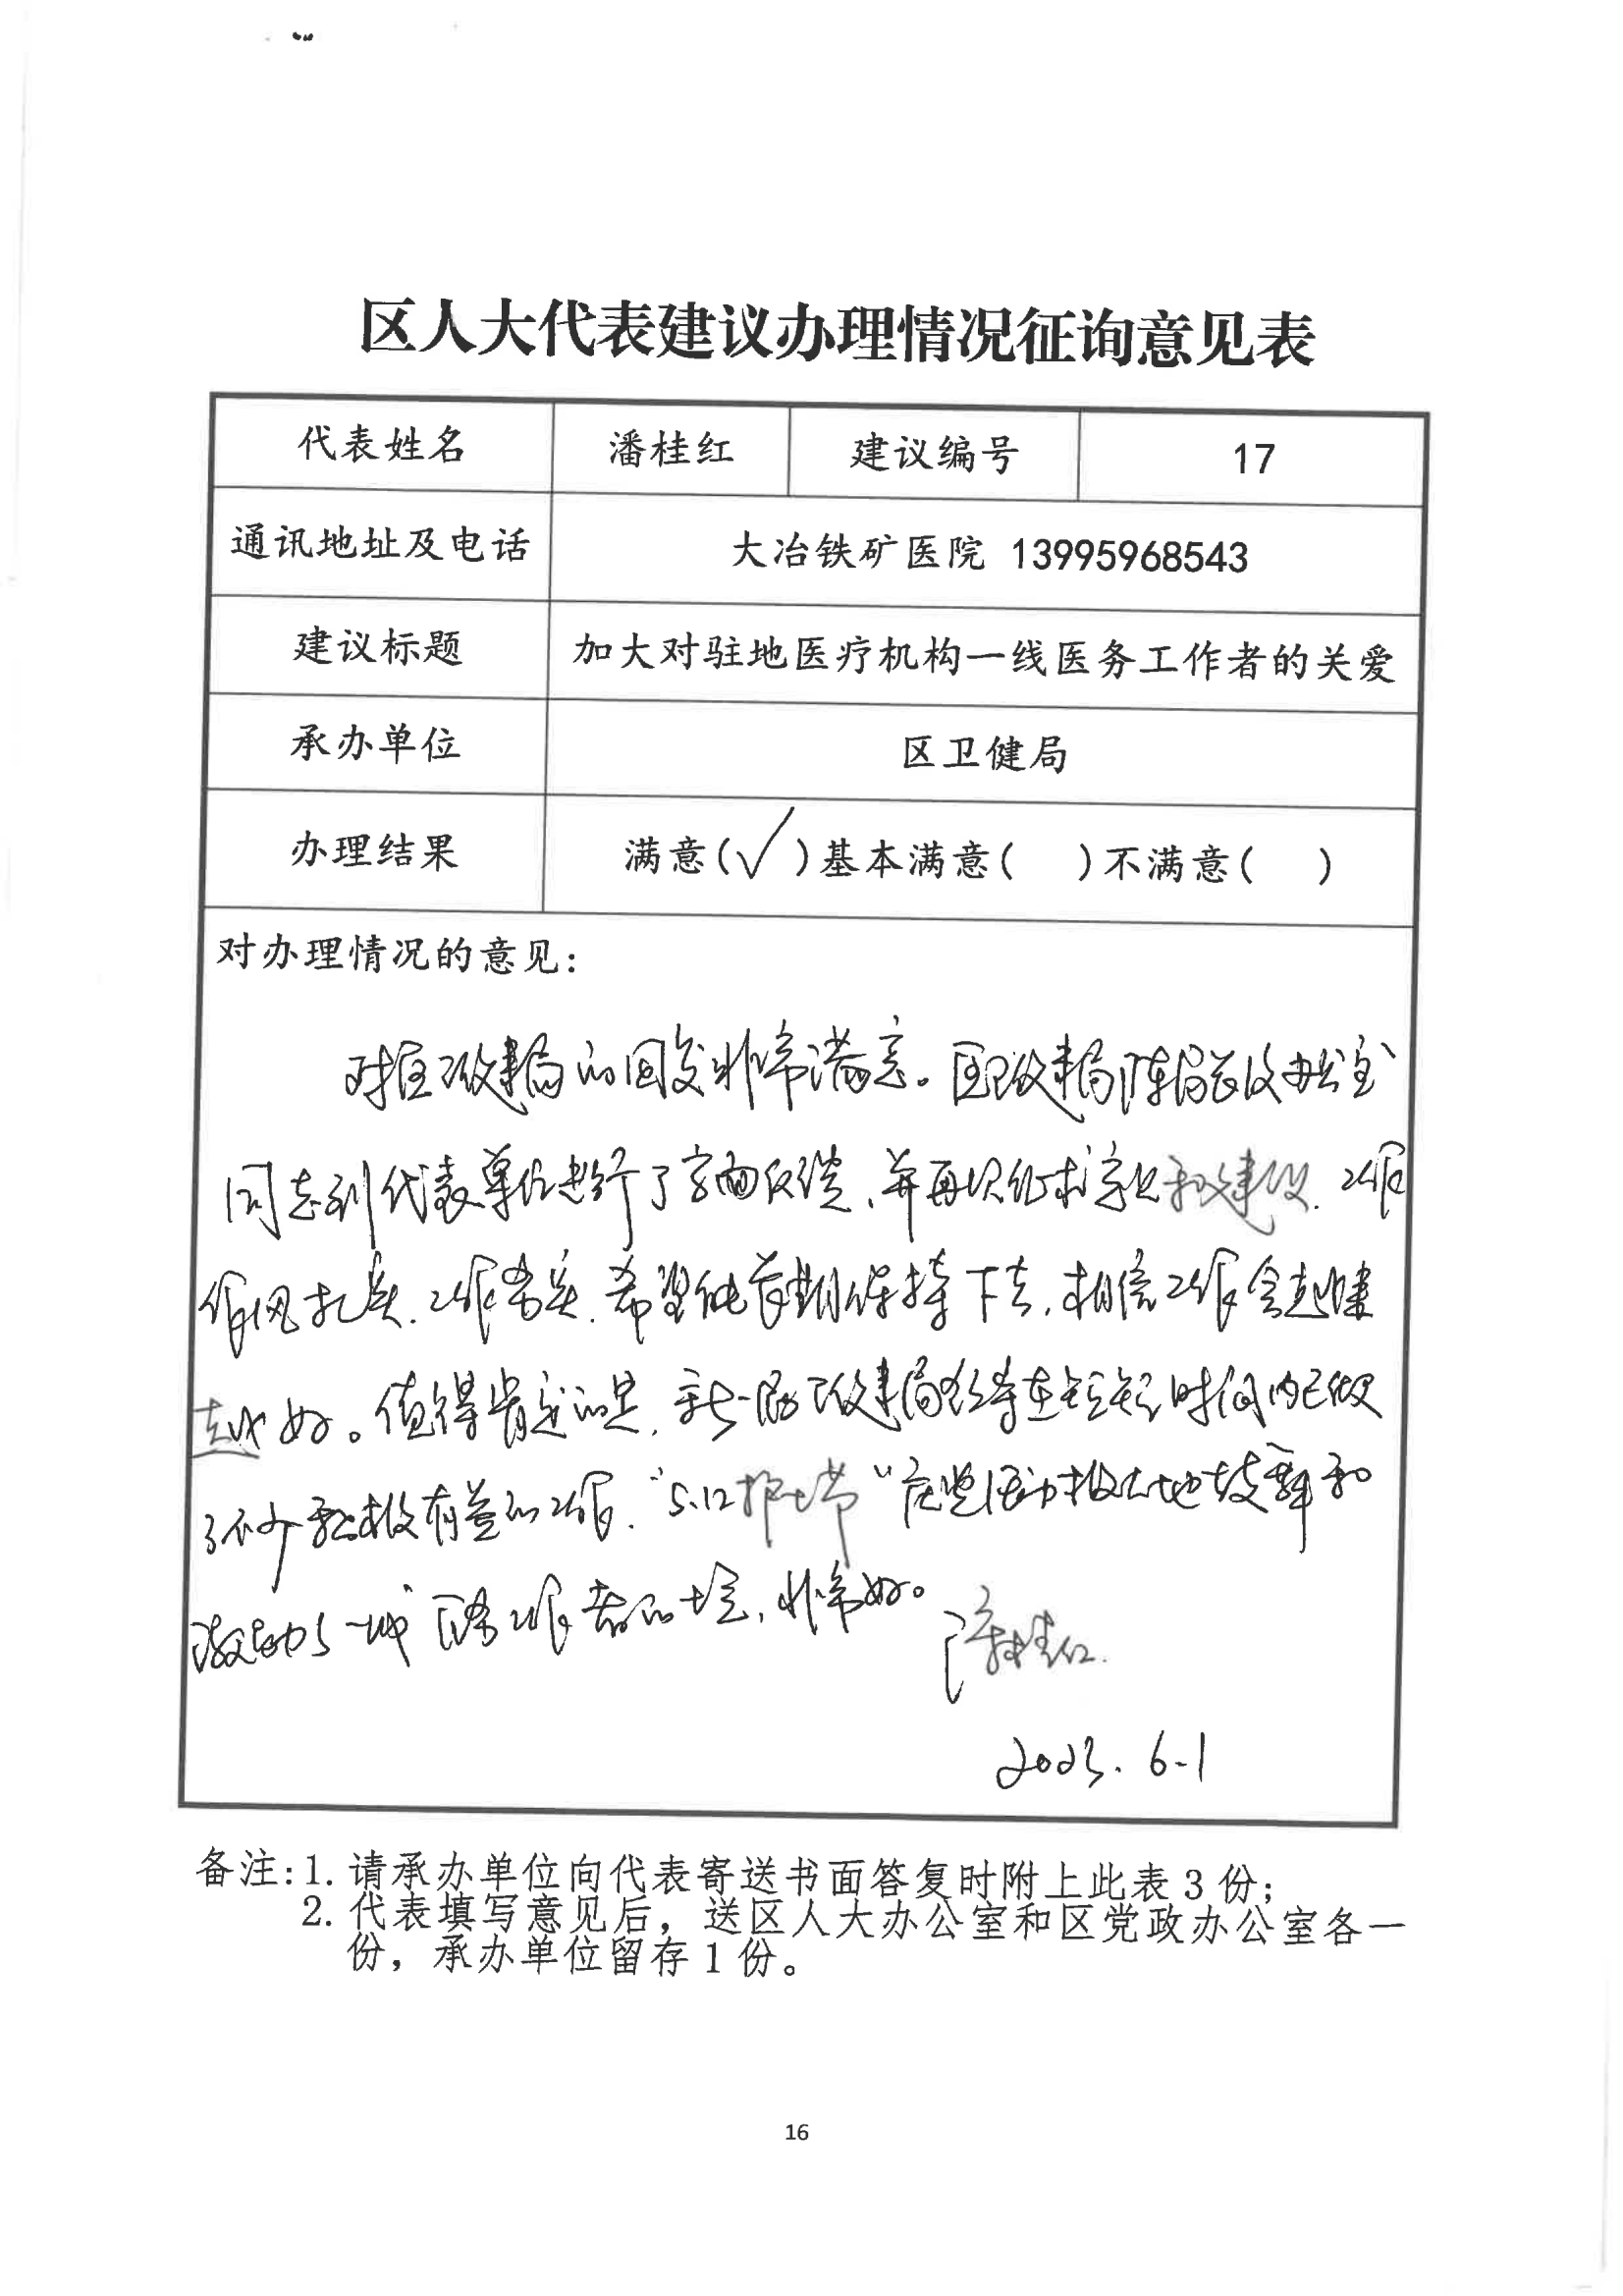 区人大代表建议办理情况征询意见表
代表姓名 潘桂红 建议编号 17
通讯地址及电话 大冶铁矿医院 13995968543
建议标题 加大对驻地医疗机构一线医务工作者的关爱
承办单位 区卫健局
办理结果 满意(√)基本满意( )不满意( )
对办理情况的意见:
对区卫健局的回复非常满意。区卫健局陈局长及办公室
同志到代表单位进行了当面反馈,并再次征求意见和建议.工作
作风扎实.工作务实.希望能长期保持下去,相信工作会越来
越好。值得肯定的是,新一届卫健局领导在短短时间内已做
了不少积极有益的工作."5.12护士节"庆典活动极大地鼓舞和
激励了一线医务工作者的士气,非常好。
潘桂红.
2023.6-1
备注:1.请承办单位向代表寄送书面答复时附上此表3份;
2.代表填写意见后,送区人大办公室和区党政办公室各一
份,承办单位留存1份。
16